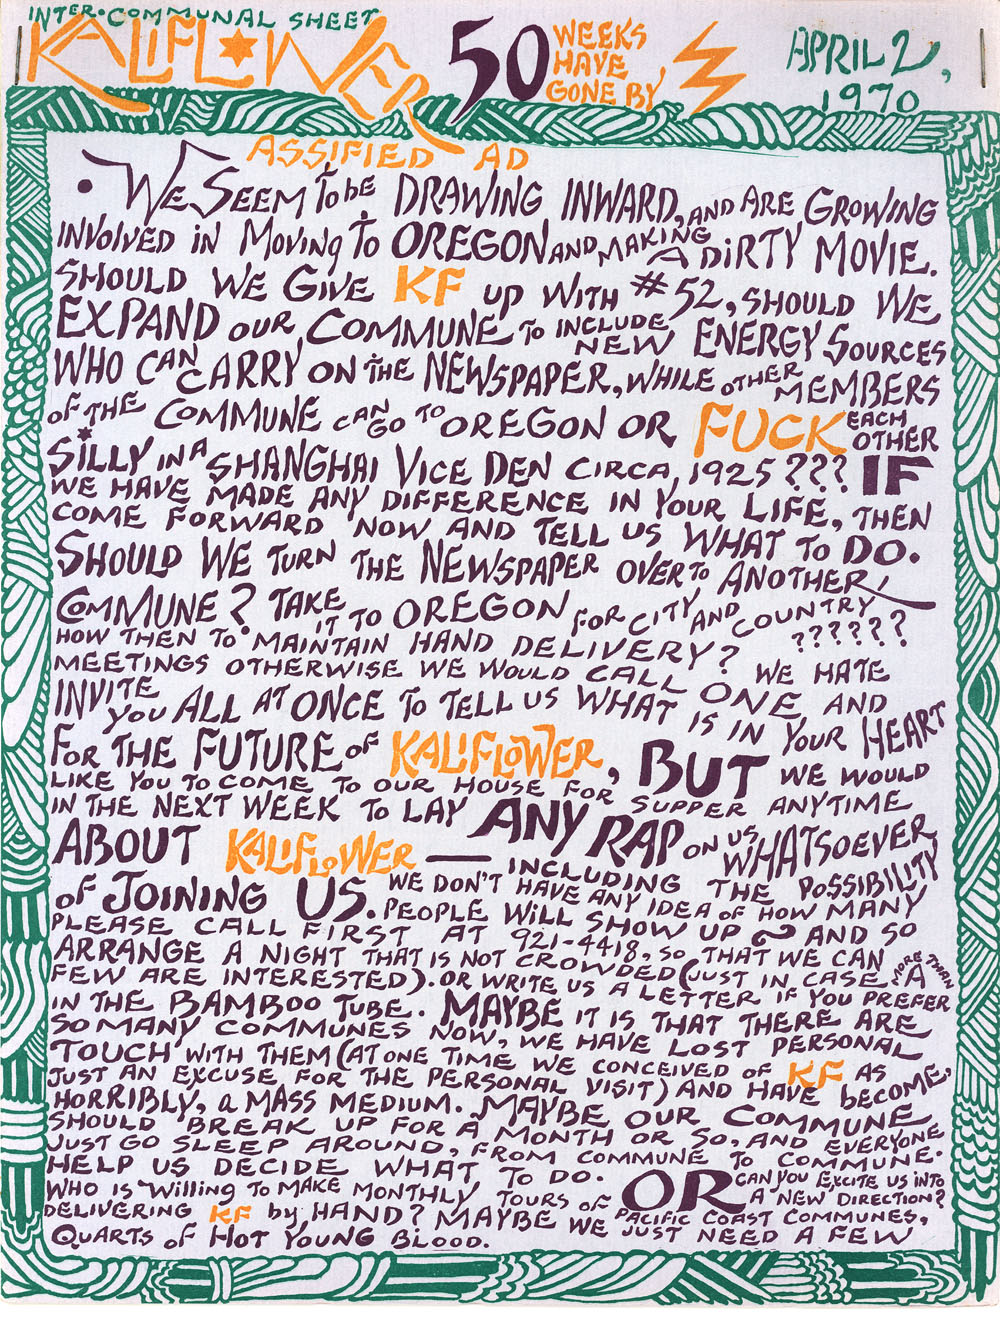 INTER•COMMUNAL SHEET
KALIFLOWER
50 WEEKS HAVE GONE BY
APRIL 2, 1970
ASSIFIED AD
• WE SEEM To be DRAWING INWARD, AND ARE GROWING
INVOLVED iN MOVING To OREGON AND MAKING A DiRTY MOVIE.
SHOULD WE GIVE KF UP WITH #52, SHOULD WE
EXPAND OUR COMMUNE TO INCLUDE NEW ENERGY SOURCES
WHO CAN CARRY ON THE NEWSPAPER, WHILE OTHER MEMBERS
OF THE COMMUNE CAN GO TO OREGON OR FUCK EACH OTHER
SILLY IN A SHANGHAI VICE DEN CIRCA, 1925??? IF
WE HAVE MADE ANY DIFFERENCE IN YOUR LIFE, THEN
COME FORWARD NOW AND TELL US WHAT To DO.
SHOULD WE TURN THE NEWSPAPER OVER To ANOTHER
COMMUNE? TAKE IT TO OREGON FOR CITY AND COUNTRY??????
HOW THEN TO MAINTAIN HAND DELIVERY? WE HATE
MEETINGS OTHERWISE WE WOULD CALL ONE AND
INVITE YOU ALL AT ONCE To TELL US WHAT IS IN YOUR HEART
FOR THE FUTURE OF KALIFLOWER, BUT WE WOULD
LIKE YOU TO COME TO OUR HOUSE FOR SUPPER ANYTIME
IN THE NEXT WEEK TO LAY ANY RAP ON US WHATSOEVER
ABOUT KALIFLOWER — INCLUDING THE POSSIBILITY
of JOINING US. WE DON'T HAVE ANY IDEA of HOW MANY
PEOPLE WILL SHOW UP ~ AND SO
PLEASE CALL FIRST AT 921-4418, SO THAT WE CAN
ARRANGE A NIGHT THAT IS NOT CROWDED (JUST IN CASE MORE THAN A
FEW ARE INTERESTED). OR WRITE US A LETTER IF YOU PREFER
IN THE BAMBOO TUBE. MAYBE IT IS THAT THERE ARE
SO MANY COMMUNES NOW, WE HAVE LOST PERSONAL
TOUCH WITH THEM (AT ONE TIME WE CONCEIVED OF KF AS
JUST AN EXCUSE FOR THE PERSONAL VISIT) AND HAVE beCOME,
HORRIBLY, a MASS MEDIUM. MAYBE OUR COMMUNE
SHOULD BREAK UP FOR A MONTH OR SO, AND EVERYONE
JUST GO SLEEP AROUND, FROM COMMUNE TO COMMUNE.
HELP US DECIDE WHAT TO DO. OR CAN YOU EXCITE US INTO A NEW DIRECTION?
WHO IS WILLING TO MAKE MONTHLY TOURS OF PACIFIC COAST COMMUNES,
DELIVERING KF by HAND? MAYBE WE JUST NEED A FEW
QUARTS of HOT YOUNG BLOOD.